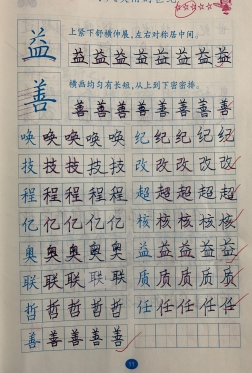 益 上紧下舒横伸展,左右对称居中间。
益益益益益益益益
善 横画均匀有长短,从上到下密密排。
善善善善善善善善
唤唤唤唤唤 纪纪纪纪纪
技技技技技 改改改改改
程程程程程 超超超超超
亿亿亿亿亿 核核核核核
奥奥奥奥奥 益益益益益
联联联联联 质质质质质
哲哲哲哲哲 任任任任任
善善善善善
11